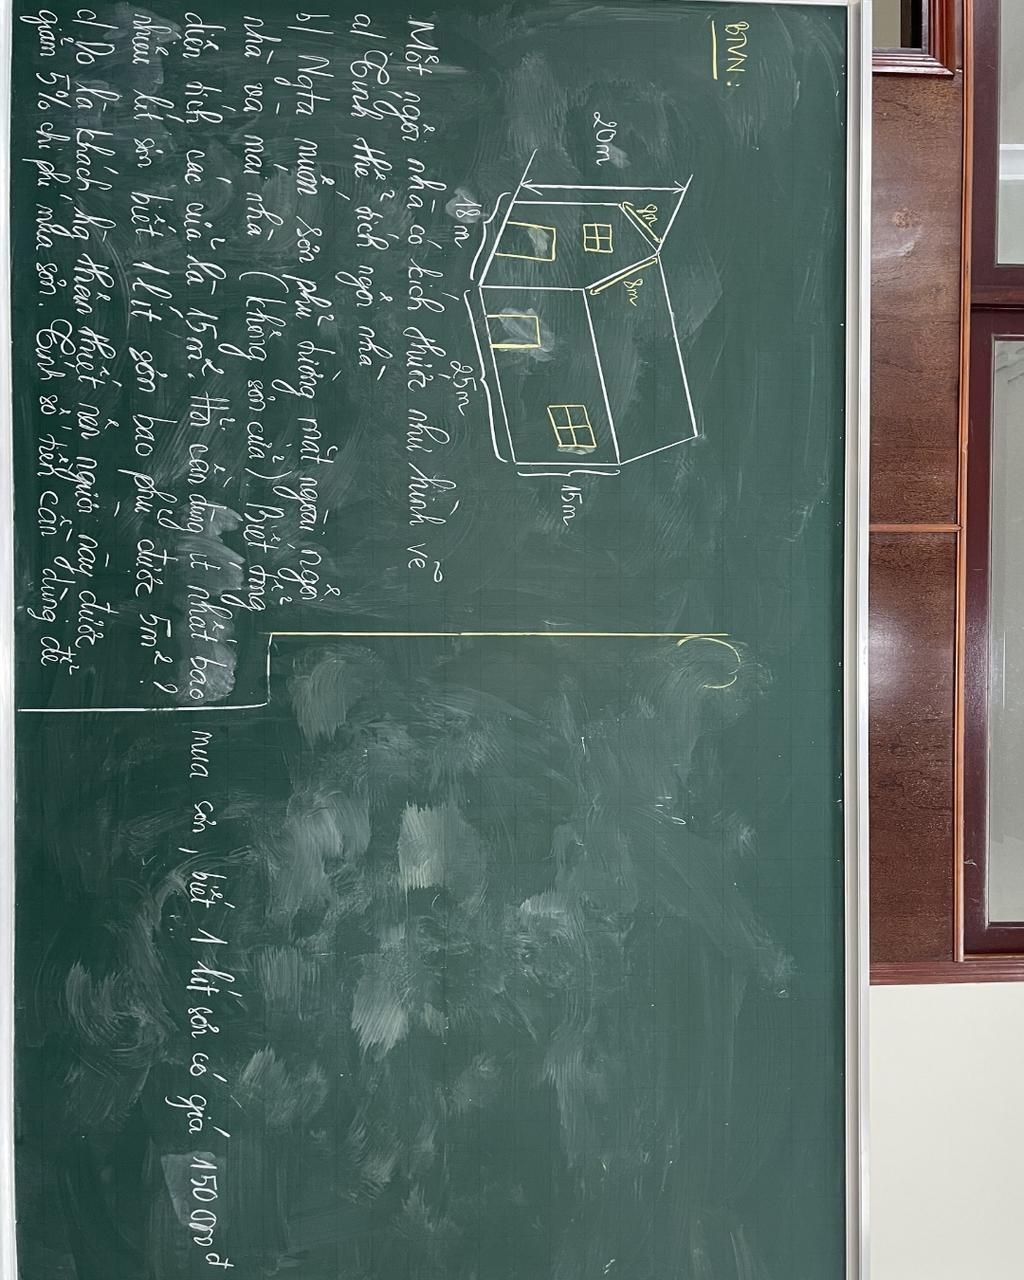 BTVN:
20m
8m
8m
18m
25m
15m
Một ngôi nhà có kích thước như hình vẽ
a) Tính thể tích ngôi nhà
b) Ngta muốn sơn phủ tường mặt ngoài ngôi
nhà và mái nhà (không sơn cửa) Biết tổng
diện tích các cửa là 15m². Hỏi cần dùng ít nhất bao
nhiêu lít sơn biết 1 lít sơn bao phủ được 5m²?
c) Do là khách hg thân thiết nên người này được
giảm 5% chi phí mua sơn. Tính số tiền cần dùng để
mua sơn, biết 1 lít sơn có giá 150 000đ